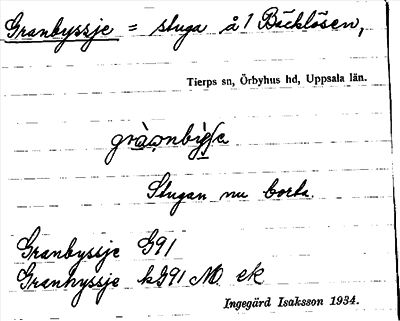 Granbyssje = stuga å 1 Bäcklösen,
Tierps sn, Örbyhus hd, Uppsala län.
Stugan nu borta.
Granbyssje G91
Granhyssje kG91 M ek
Ingegärd Isaksson 1934.